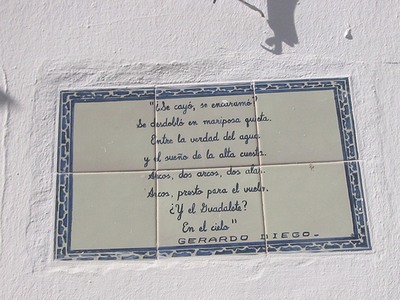 "¿Se cayó, se encaramó?
Se desdobló en mariposa quieta.
Entre la verdad del agua
y el sueño de la alta cuesta.
Arcos, dos arcos, dos alas.
Arcos, presto para el vuelo.
¿Y el Guadalete?
En el cielo"
GERARDO DIEGO.-